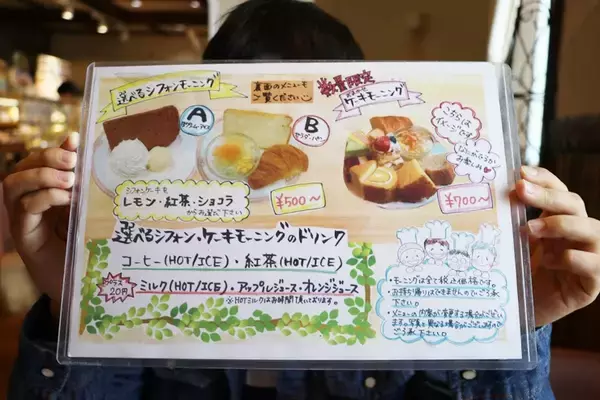 選べるシフォンモーニング
裏面のメニューも
ご覧ください
数量限定
ケーキモーニング
A
B
こちらは
イメージです!
¥500～
¥700～
シフォンケーキを
レモン・紅茶・ショコラ
からお選び下さい
選べるシフォン・ケーキモーニングのドリンク
コーヒー(HOT/ICE)・紅茶(HOT/ICE)
プラス
20円
ミルク(HOT/ICE)・アップルジュース・オレンジジュース
※HOTミルクはお時間頂いております。
・モーニングは全て税込価格です。
・お持ち帰りはできませんのでご了承
下さい。
・メニューの内容が変更する場合がござい
ます。写真と異なる場合がございますので
ご了承下さい。